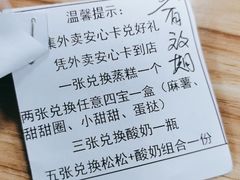 温馨提示:
集外卖安心卡兑好礼
凭外卖安心卡到店
一张兑换蒸糕一个
两张兑换任意四宝一盒(麻薯、
甜甜圈、小甜甜、蛋挞)
三张兑换酸奶一瓶
五张兑换松松+酸奶组合一份
有效期